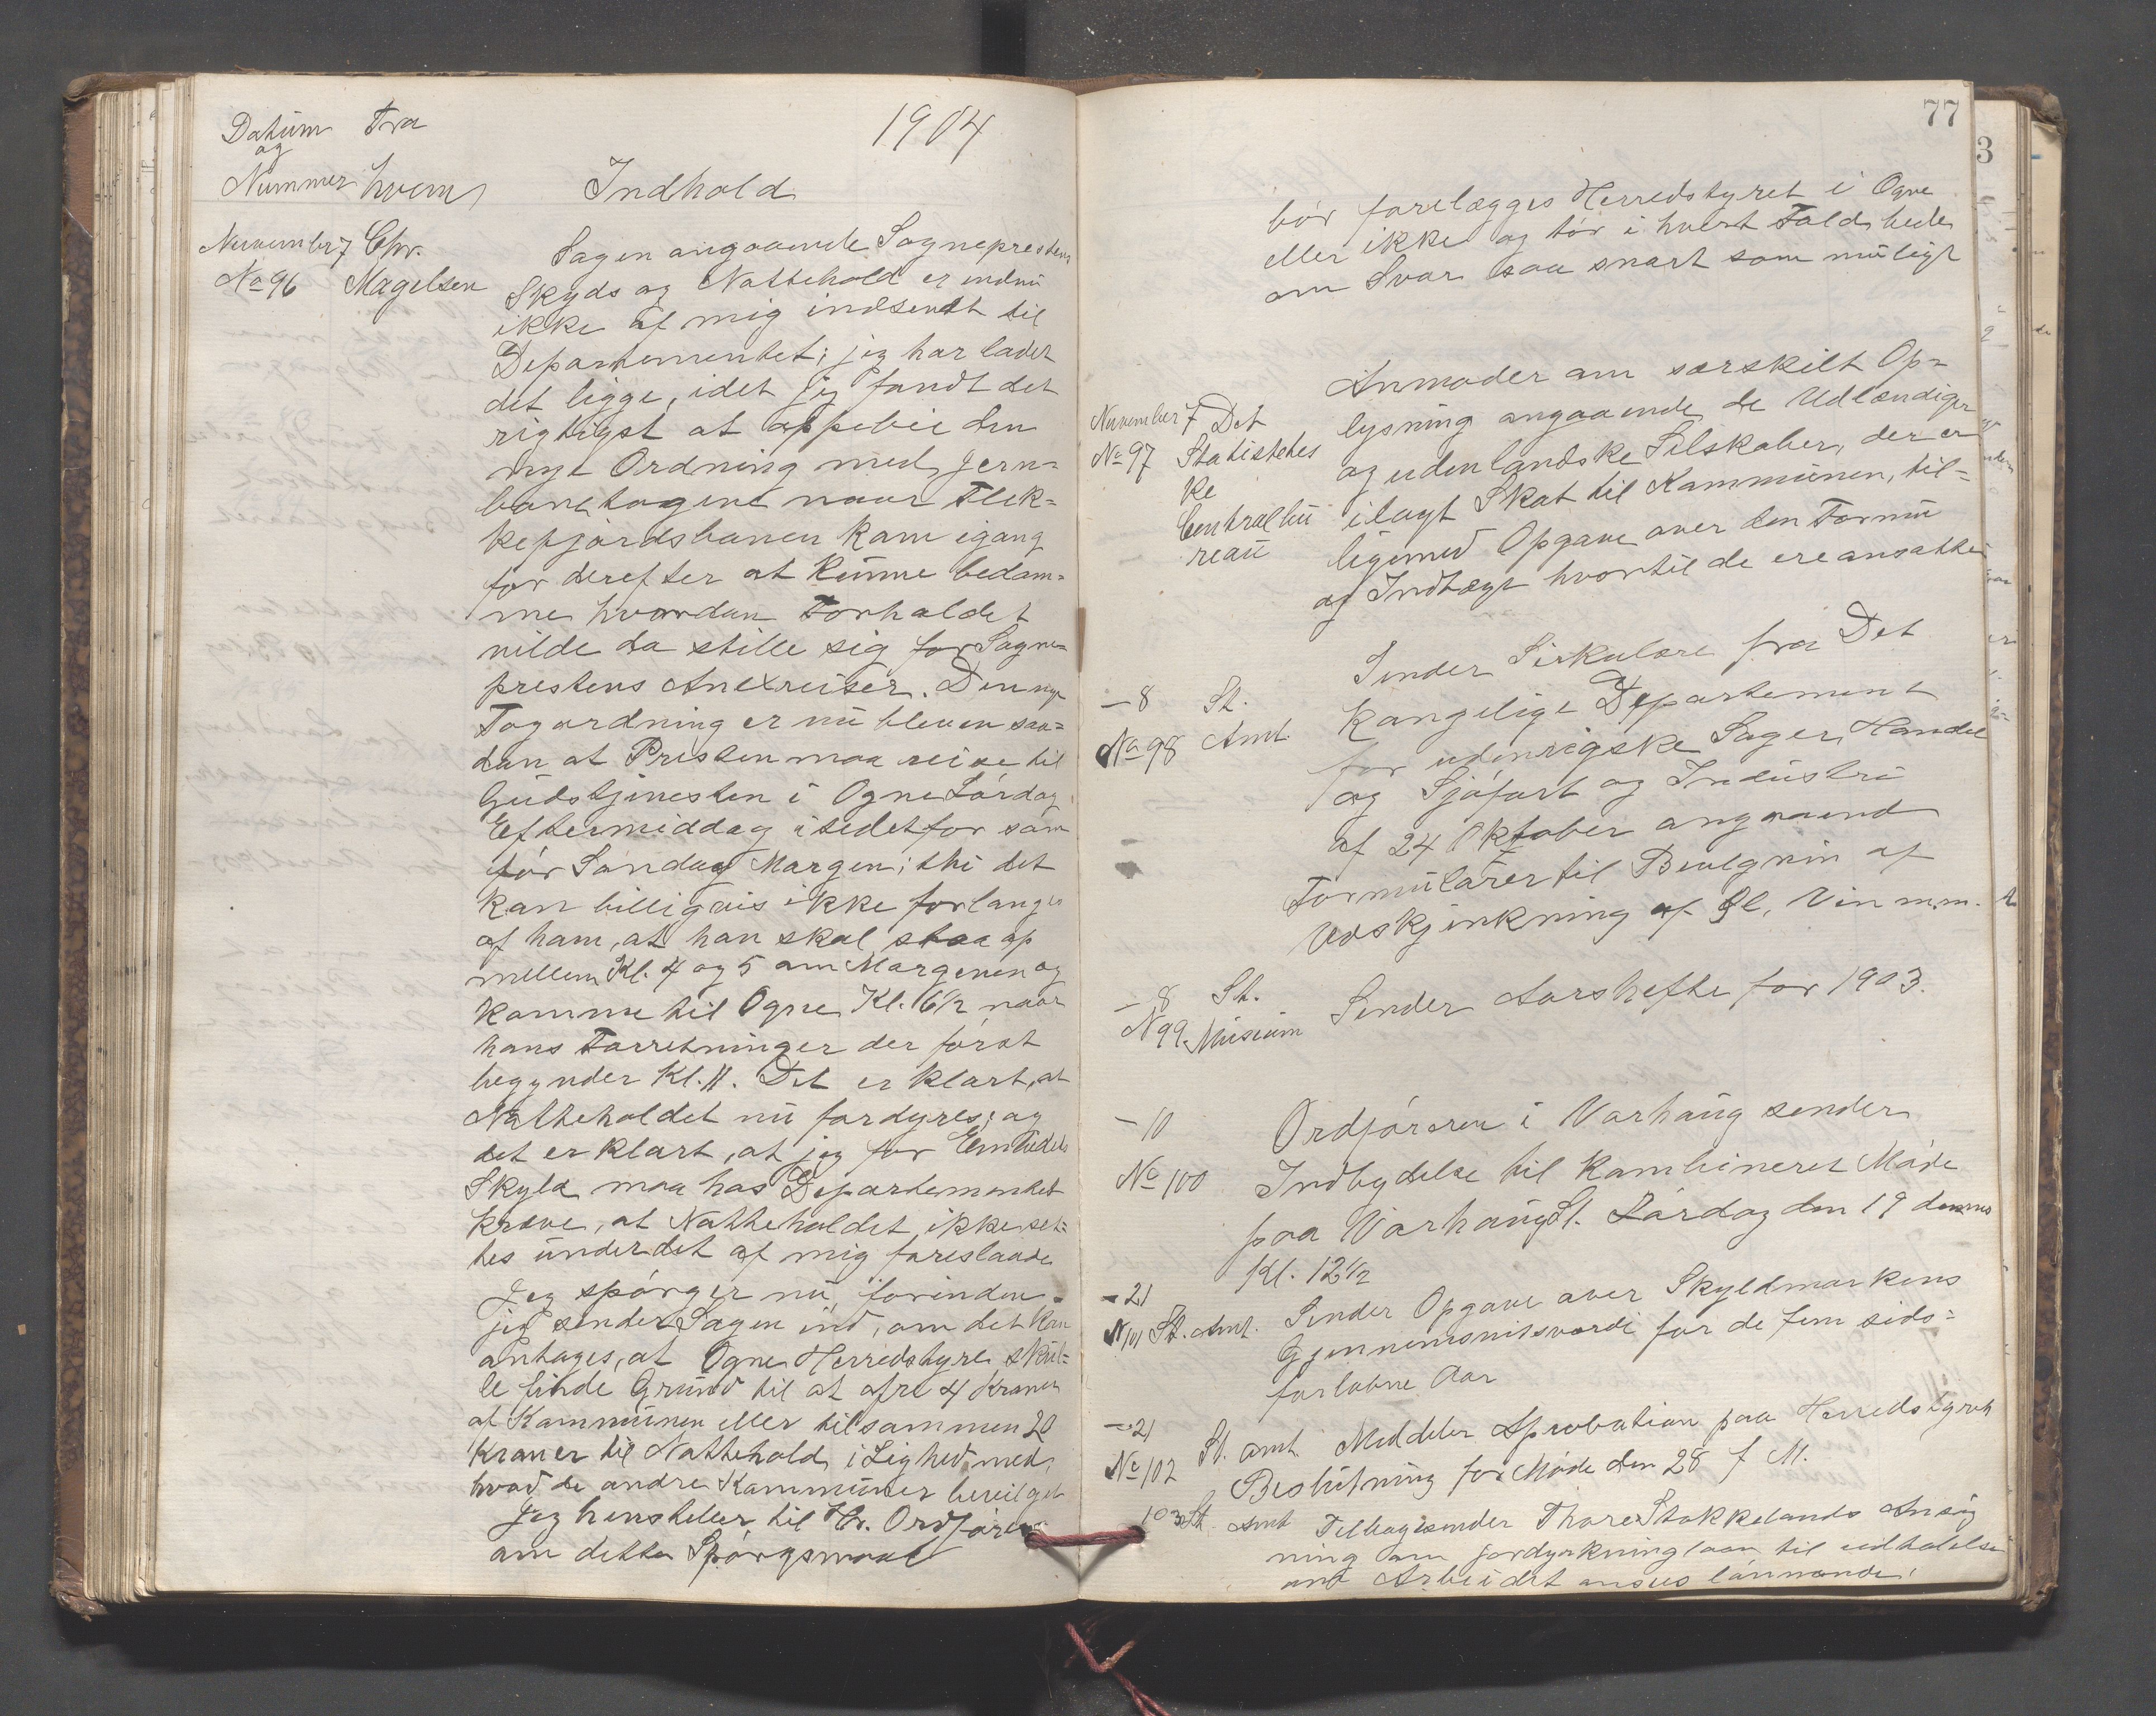 Datum Fra 1904
og
Nummer hvem Indhold
November 7 Chr. Sagen angaaende Sogneprestens
No 96 Magelsen Skyds og Nattehold er endnu
ikke af mig indsendt til
Departementet; jeg har ladet
det ligge, idet jeg fandt det
rigtigst at oppebie den
nye Ordning med Jern=
banetogene naar Flek=
kefjordsbanen kom igang
for derefter at kunne bedøm=
me hvordan Forholdet
vilde da stille sig for Sogne=
prestens Anexreiser. Den nye
Togordning er nu bleven saa=
dan at Presten maa reise til
Gudstjenesten i Ogne Lørdag
Eftermiddag istedetfor som
før Søndag Morgen; thi det
kan billigvis ikke forlanges
af ham, at han skal staa op
mellem Kl. 4 og 5 om Morgenen og
komme til Ogne Kl. 6 1/2 naar
hans Forretninger der først
begynder Kl. 11. Det er klart, at
Natteholdet nu fordyres; og
det er klart, at jeg for Embedets
Skyld maa hos Departementet
kræve, at Natteholdet ikke set=
tes under det af mig foreslaade
Jeg spørger nu, forinden
jeg sender Sagen ind, om det kan
antages, at Ogne Herredstyre skul=
le finde Grund til at afre 4 Kroner
at Kommunen eller tilsammen 20
Kroner til Nattehold i Lighed med,
hvad de andre Kommuner beveilget
Jeg henstiller til Hr. Ordfører
om dette Spørgsmaal
77
3
bør forelægges Herredstyret i Ogne
eller ikke og tør i hvert Fald bede
om Svar saa snart som muligt
Anmoder om særskilt Op=
November 7 Det lysning angaaende de Udlændiger
No 97 Statistetes og udenlandske Selskaber, der er
ke ilagt Skat til Kommunen, til=
Centralbu ligemed Opgave over den Formu
reau og Indtægt hvortil de ere ansatte
Sender Sirkulære fra Det
- 8 St. Kongelige Departement
No 98 Amt. for udenrigske Sager, Handel
og Sjøfart og Industri
af 24 Oktober angaaend
Formularer til Bevilgnin af
Udskjænkning af Øl, Vin m.m.
- 8 St. Sender Aarshefte for 1903.
N 99. Musium
- 10 Ordføreren i Varhaug sender
No 100 Indbydelse til kombineret Møde
paa Varhaug St. Lørdag den 19 dennes
Kl. 12 1/2
- 21 Sender Opgave over Skyldmarkens
N 101 St. Amt. Gjennemsnitsværdi for de fem sids=
forløbne Aar
- 21 St. amt Meddeler Aprobation paa Herredstyrets
No 102 Beslutning for Møde den 28 f M.
103 St. Amt Tilbagesender Thore Stokkelands Ansøg
ning om jordyrkninglaan til udtalelse
om Arbeidet ansees lønnende.